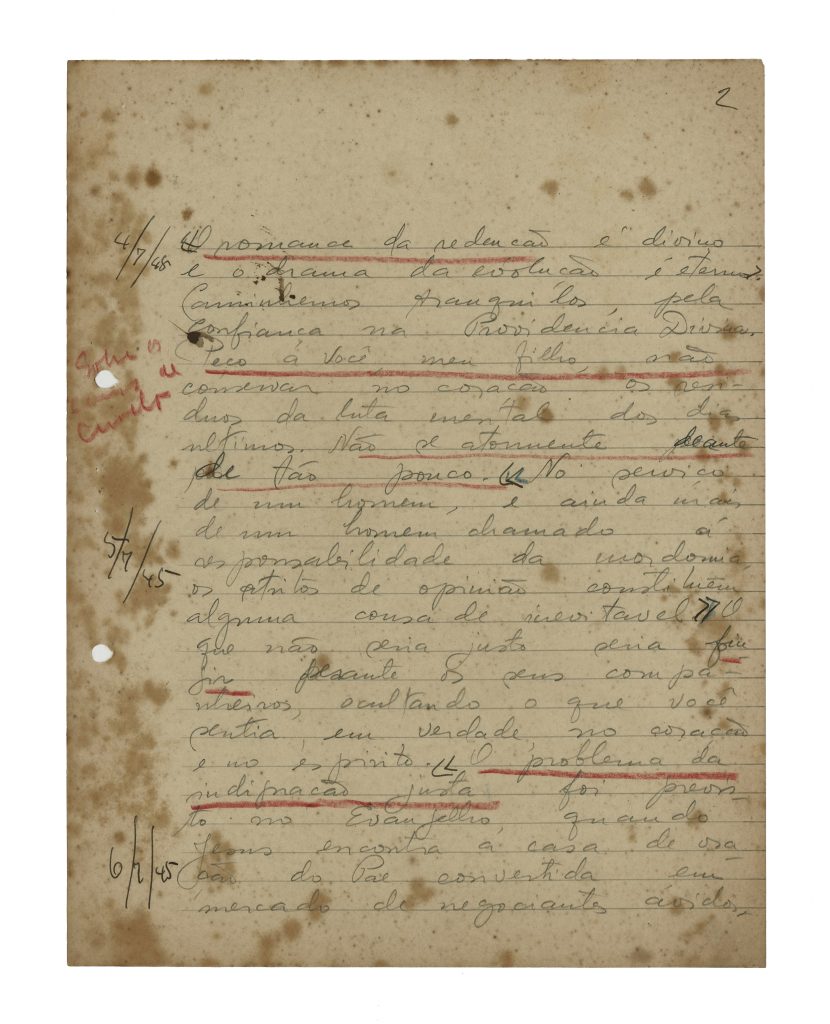 2
4/7/45
O romance da redenção é divino
e o drama da evolução é eterno.
Caminhemos tranquilos, pela
confiança na Providencia Divina.
Peço á você, meu filho, não
conservar no coração os resi-
duos da luta mental dos dias
ultimos. Não se atormente deante
de tão pouco. « No serviço
de um homem, e ainda mais
de um homem chamado á
responsabilidade da mordomia,
os atritos de opinião constituem
alguma cousa de inevitavel » O
5/7/45
que não seria justo seria fin
jir perante os seus compa-
nheiros, ocultando o que você
sentia, em verdade no coração
e no espirito. « O problema da
indignação justa foi previs-
to no Evanjelho, quando
Jesus encontra a casa de ora
ção do Pae convertida em
mercado de negociantes ávidos,
6/7/45